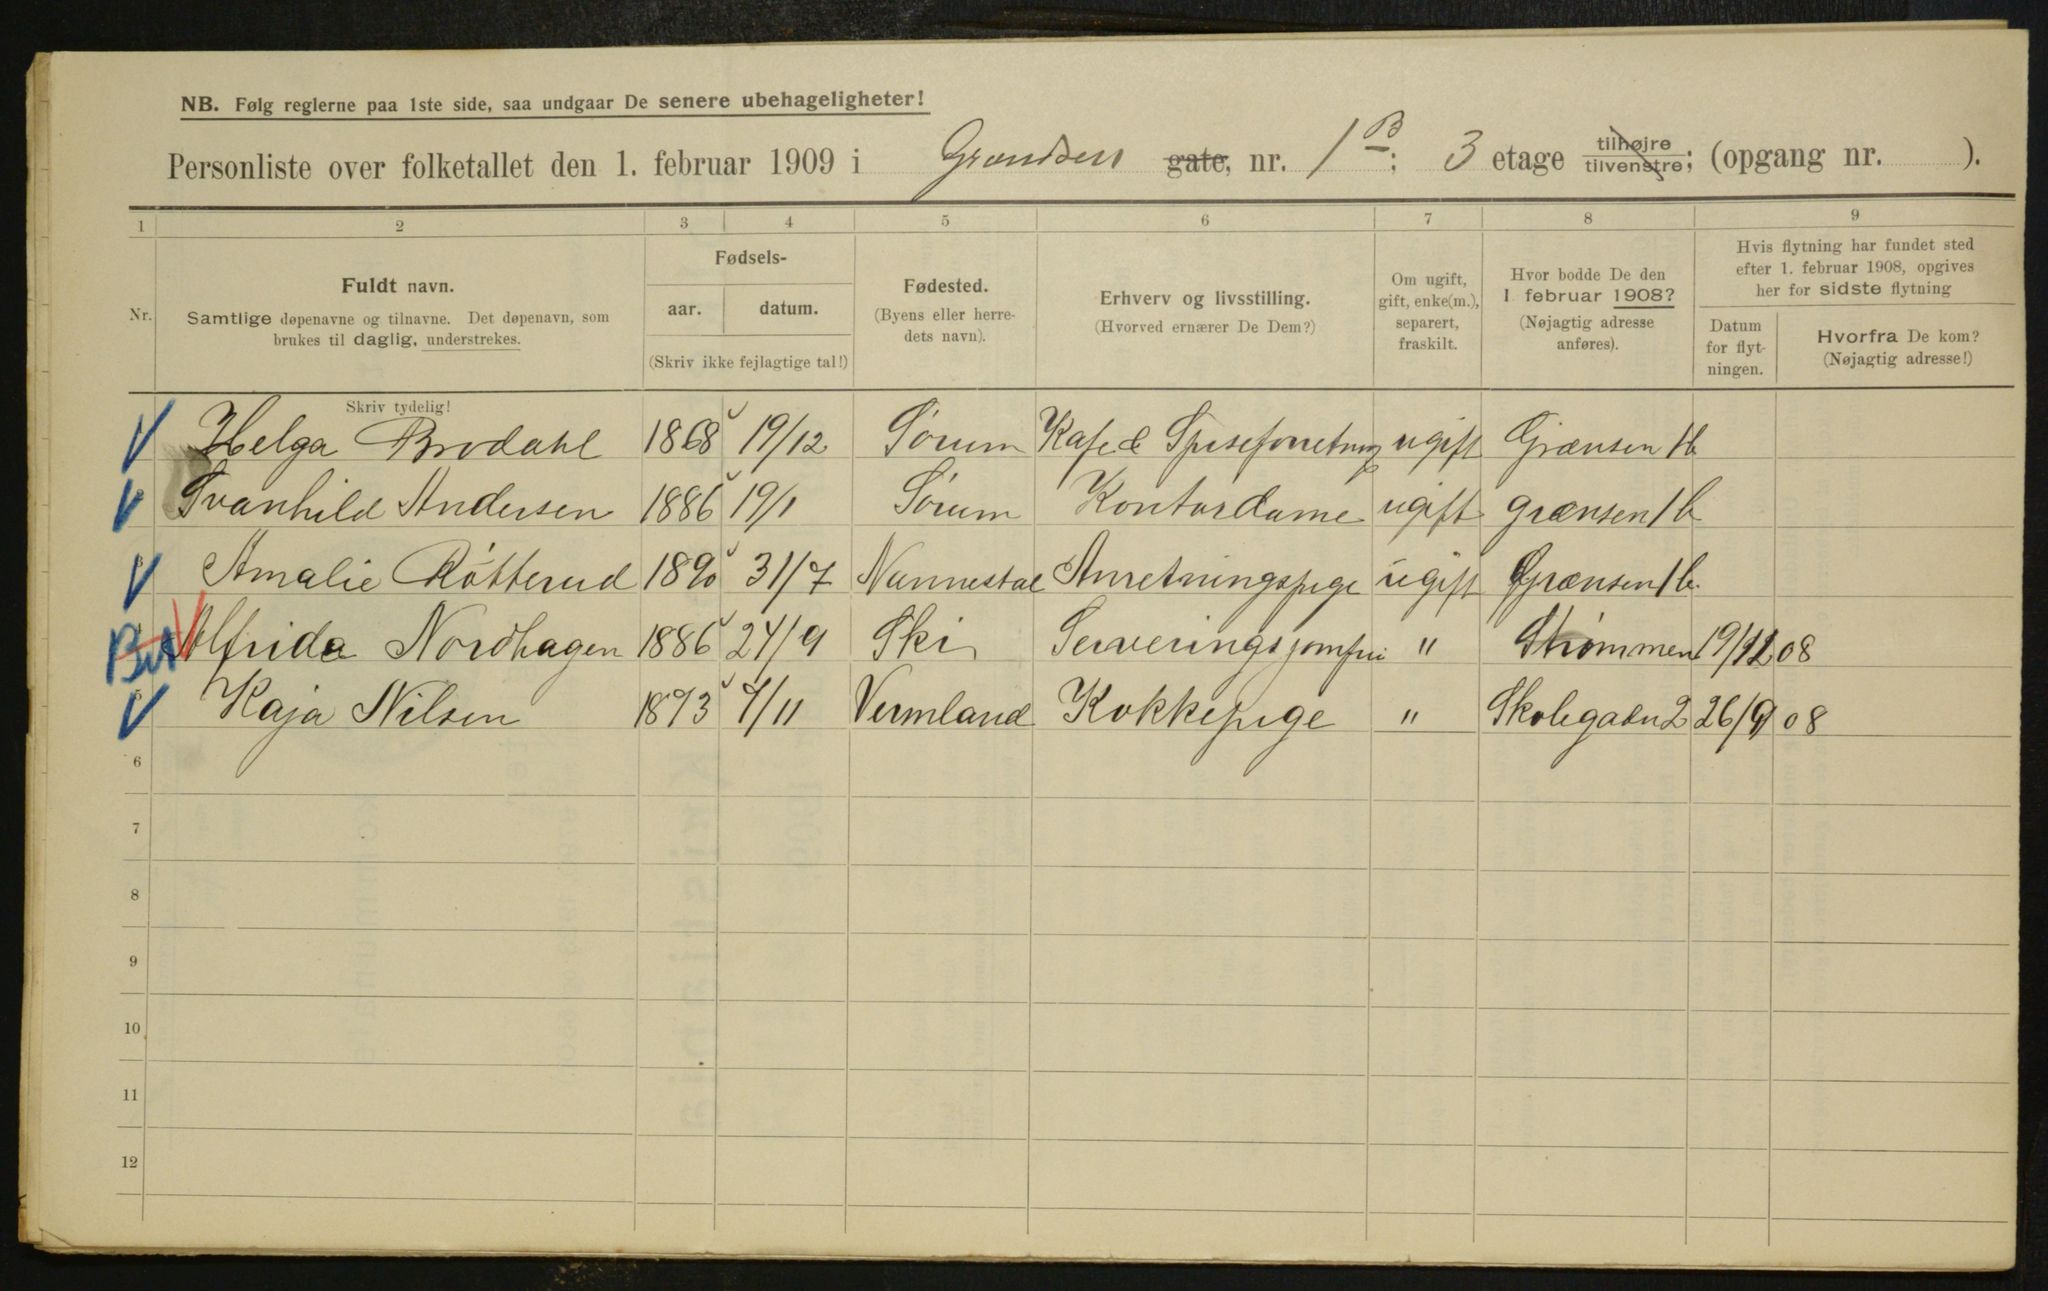 NB. Følg reglerne paa 1ste side, saa undgaar De senere ubehageligheter!
Personliste over folketallet den 1. februar 1909 i Grændsen gate, nr. 1 B; 3 etage tilhøjre tilvenstre; (opgang nr. ).
1 2 3 4 5 6 7 8 9
Nr.
Fuldt navn.
Samtlige døpenavne og tilnavne. Det døpenavn, som
brukes til daglig, understrekes.
Skriv tydelig!
Fødsels-
aar. datum.
(Skriv ikke fejlagtige tal!)
Fødested.
(Byens eller herre-
dets navn).
Erhverv og livsstilling.
(Hvorved ernærer De Dem?)
Om ugift,
gift, enke(m.),
separert,
fraskilt.
Hvor bodde De den
1 februar 1908?
(Nøjagtig adresse
anføres).
Hvis flytning har fundet sted
efter 1. februar 1908, opgives
her for sidste flytning
Datum
for flyt-
ningen.
Hvorfra De kom?
(Nøjagtig adresse!)
Helga Brodahl 1868 19/12 Sørum Kafe & Spiseforretning ugift Grænsen 1b
Svanhild Andersen 1886 19/1 Sørum Kontordame ugift grænsen 1b
3 Amalie Røtterud 1890 31/7 Nannestad Anretningspige ugift Grænsen 1b.
Alfrida Nordhagen 1886 24/9 Ski Serveringsjomfru " Strømmen 19/12 08
5 Kaja Nilsen 1873 7/11 Vermland Kokkepige " Skolegaden 2 26/9 08
6
7
8
9
10
11
12